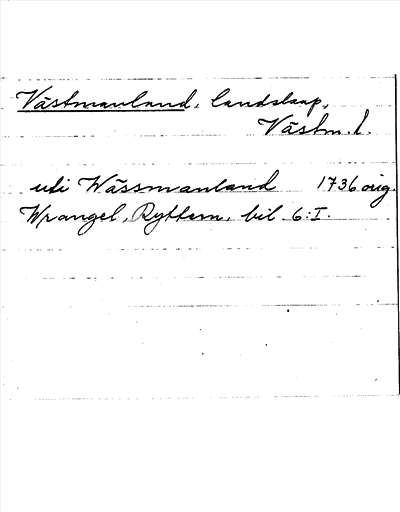 Västmanland, landskap,
Västm. l.
uti Wässmanland 1736 orig.
Wrangel, Ryttern, bil 6:I.